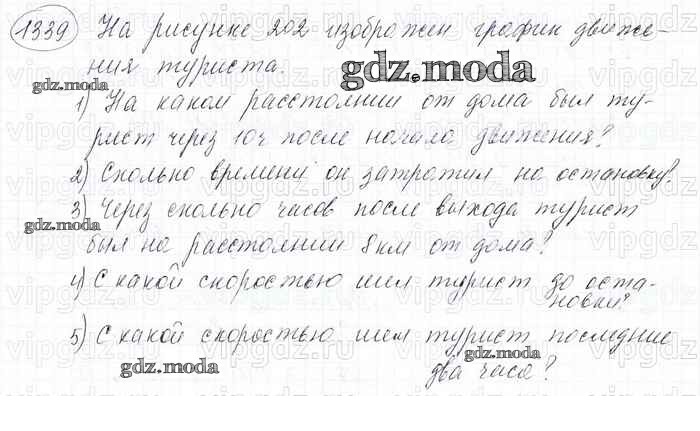 1339 На рисунке 202 изображен график движе-
ния туриста.
gdz.moda
gdz.moda
1) На каком расстоянии от дома был ту-
рист через 10ч после начала движения?
2) Сколько времени он затратил на остановку?
3) Через сколько часов после выхода турист
gdz.moda
был на расстоянии 8км от дома?
4) С какой скоростью шел турист до оста-
новки?
5) С какой скоростью шел турист последние
gdz.moda
gdz.moda
два часа?